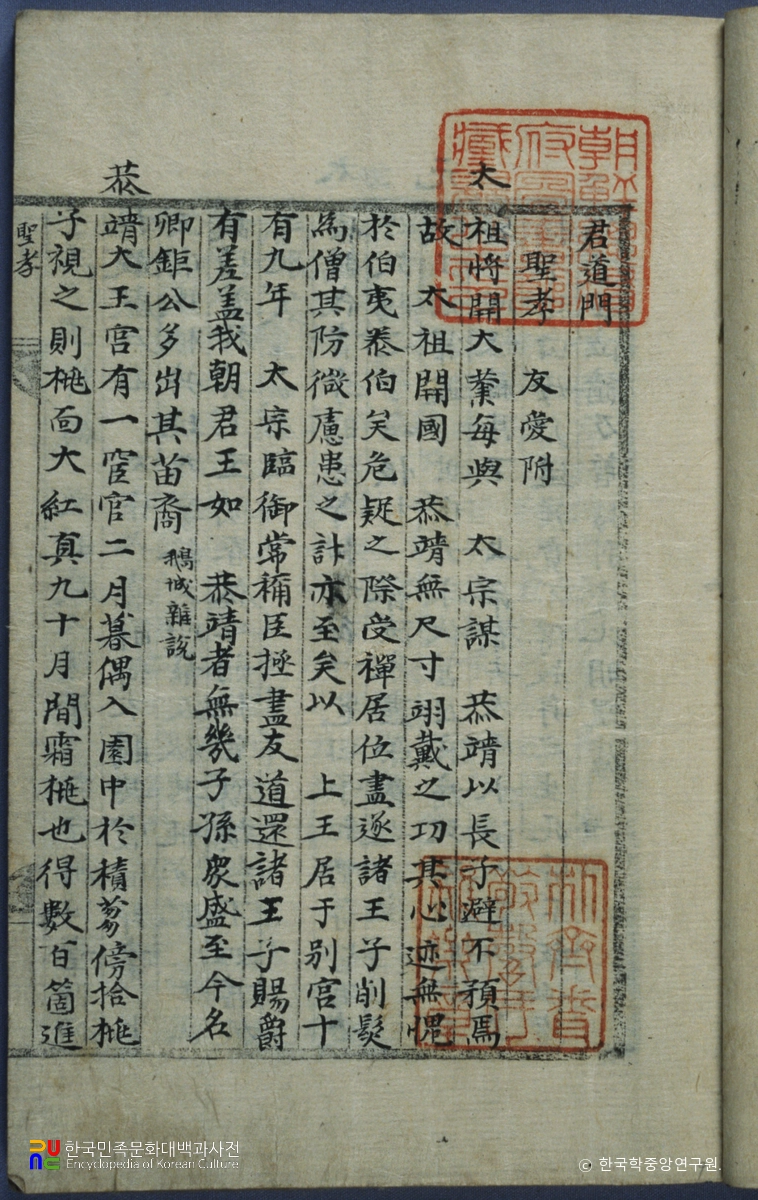 君道門
聖孝 友愛附
太祖將開大業每與 太宗謀 恭靖以長子避不預焉
故 太祖開國 恭靖無尺寸翊戴之功其心迹無愧
於伯夷泰伯矣危疑之際受禪居位盡遂諸王子削髮
爲僧其防微慮患之計亦至矣以 上王居于别宮十
有九年 太宗臨御常稱臣極盡友道還諸王子賜爵
有差盖我朝君王如 恭靖者無幾子孫衆盛至今名
卿鉅公多出其苗裔 鵝城雜說
恭靖大王宮有一宦官二月暮偶入園中於積芻傍拾桃
子視之則桃面大紅真九十月間霜桃也得數百箇進
聖孝
한국민족문화대백과사전
Encyclopedia of Korean Culture
© 한국학중앙연구원.